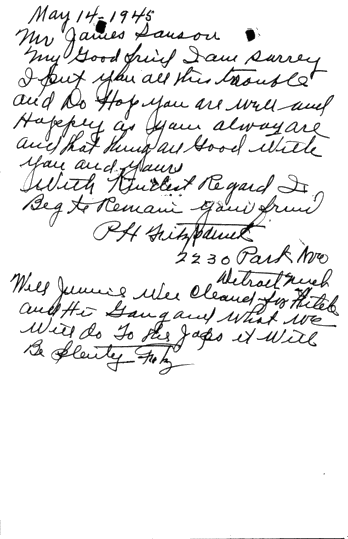 May 14-1945
Mr James Sanson
My Good frind I am surrey
I put you all this trouble
and Do Hop you are well and
Happey as you alway are
and that thing are Good with
you and yours
With Kindest Regard I
Beg to Remain your frind
P H Fitzpatrick
2230 Park Ave
Detroit Mich
Well Jimmie Wee Cleand up Hitle
and Hi Gang and What We
Will do To the Japs it Will
Be Plenty Fitz